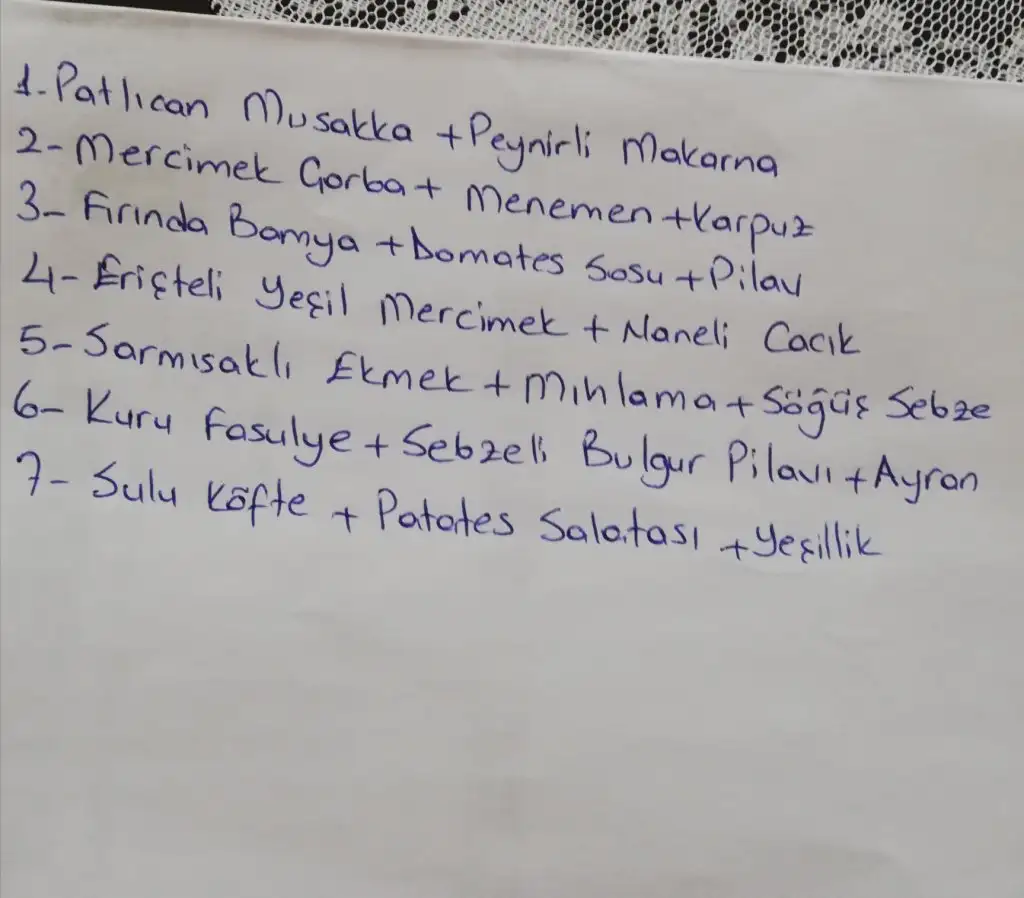 1-Patlıcan Musakka +Peynirli Makarna
2-Mercimek Çorba+ Menemen +Karpuz
3- Fırında Bamya +Domates Sosu +Pilav
4- Erişteli Yeşil Mercimek + Naneli Cacık
5- Sarmısaklı Ekmek + Mıhlama + Söğüş Sebze
6- Kuru Fasulye + Sebzeli Bulgur Pilavı +Ayran
7- Sulu Köfte + Patates Salatası +Yeşillik